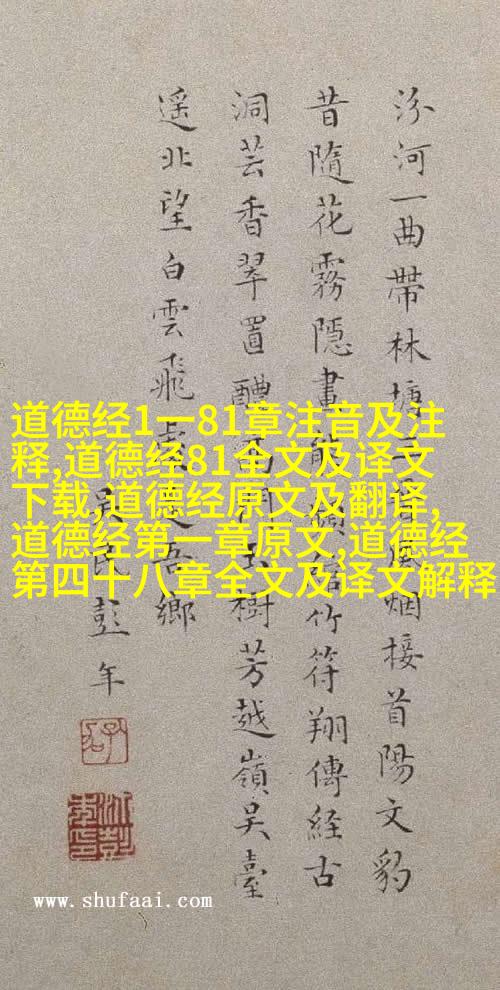 汾河一曲帶林塘 烟接首陽文豹
昔隨花霧隱畫能 竹符翔傳経古
洞芸香翠置醴 樹芳越嶺吳臺
遥北望白雲飛處是吾鄉
彭年
道德经1一81章注音及注
释,道德经81全文及译文
下载,道德经原文及翻译,
道德经第一章原文,道德经
第四十八章全文及译文解释
www.shufaai.com